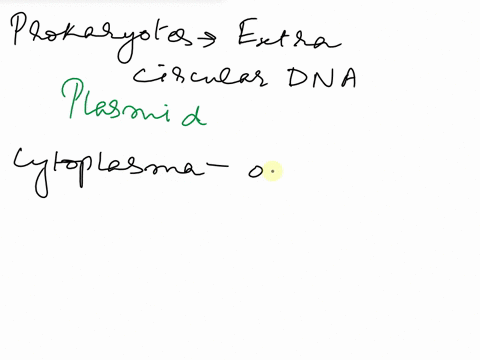 Prokaryotes → Extra
circular DNA
Plasmid
Cytoplasma - o